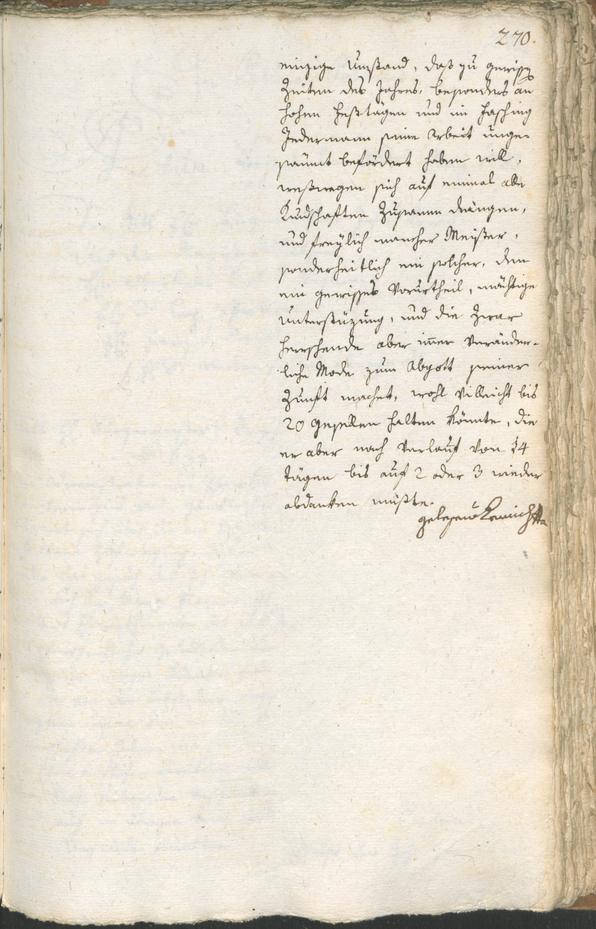 270.
einzige Umstand, daß zu gewissen
Zeiten des Jahres, besonders an
hohen Festtägen und im Fasching
Jedermann seine Arbeit unge-
säumt befördert haben will,
weßwegen sich auf einmal alle
Kundschaften zusamm drängen,
und freylich mancher Meister,
sonderheitlich ein solcher, dem
ein gewisses Vorurtheil, mächtige
Unterstüzung, und die zwar
herrschende aber imer veränder-
liche Mode zum Abgott seiner
Zunft machet, wohl villeicht bis
20 Gesellen halten könnte, die
er aber nach Verlauf von 14
tägen bis auf 2 oder 3 wieder
abdanken müßte.